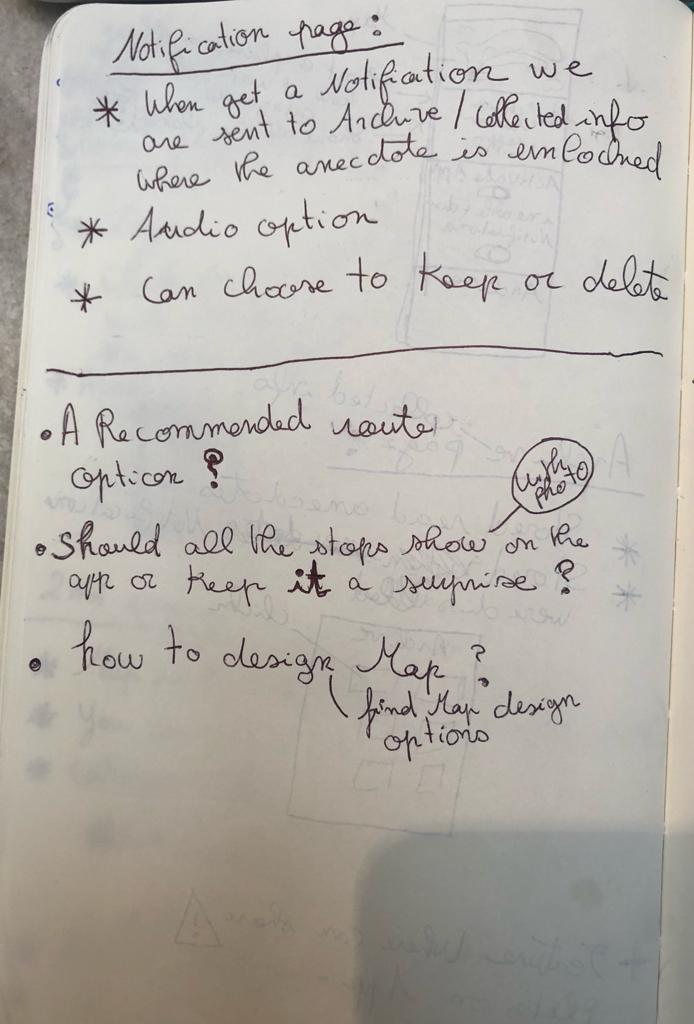 Notification page:
* When get a Notification we
are sent to Archive / Collected info
where the anecdote is
* Audio option
* Can choose to keep or delete
• A Recommended route
option?
with
photo
• Should all the stops show on the
app or keep it a surprise?
• how to design Map?
find Map design
options